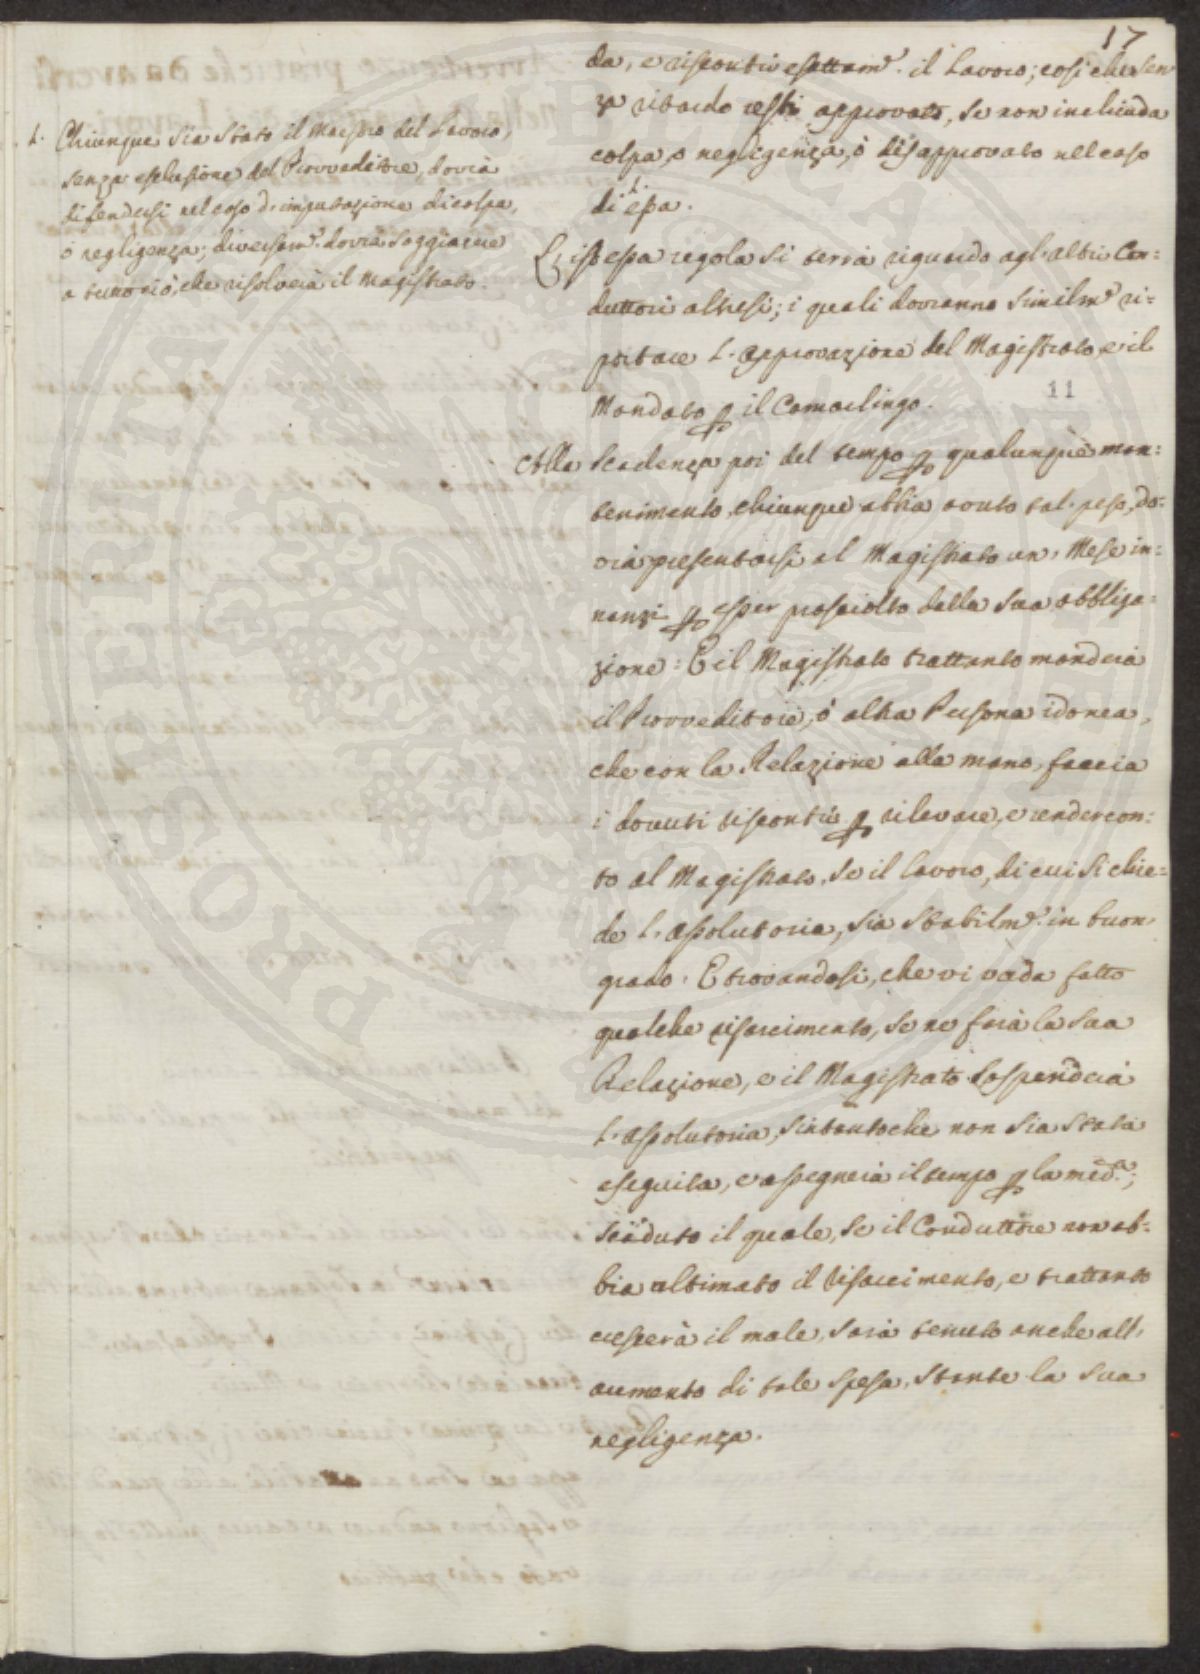 17
da, e riscontri esattam.e il Lavoro; così che sen
za ritardo resti approvato, se non inchiuda
colpa, o negligenza, ò disapprovato nel caso
di essa.
L'istessa regola si terrà riguardo agl'altri Con:
duttori altresì; i quali dovranno similm.e ri:
portare l'approvazione del Magistrato, e il
Mandato p il Camarlingo.
11
Alla scadenza poi del tempo p qualunque man:
tenimento, chiunque abbia avuto tal peso, do:
vrà presentarsi al Magistrato un Mese in:
nanzi p esser prosciolto dalla sua obbliga:
zione: E il Magistrato trattanto manderà
il Provveditore, ò altra Persona idonea,
che con la Relazione alla mano, faccia
i dovuti riscontri p rilevare, e render con:
to al Magistrato, se il Lavoro, di cui si chie:
de l'assolutoria, sia stabilm.e in buon
grado. E trovandosi, che vi vada fatto
qualche risarcimento, se ne farà la sua
Relazione, e il Magistrato sospenderà
l'assolutoria, sintantoche non sia stata
eseguita, e assegnerà il tempo p la med.a;
scaduto il quale, se il Conduttore non ab:
bia ultimato il risarcimento, e trattanto
crescerà il male, sarà tenuto anche all'
aumento di tale spesa, stante la sua
negligenza.
L. Chiunque sia stato il Maestro del Lavoro,
senza esclusione del Provveditore, dovrà
difendersi nel caso d'imputazione di colpa,
ò negligenza; diversam.e dovrà soggiacere
a tutto ciò, che risolverà il Magistrato.
PROSPERITÀ